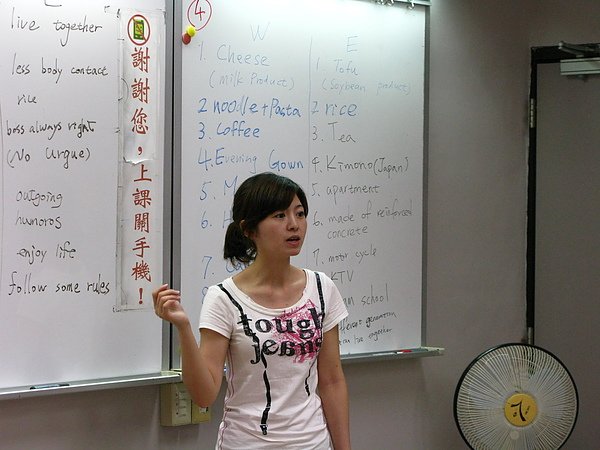 live together
less body contact
rice
boss always right
(No Urgue)
outgoing
humoros
enjoy life
follow some rules
謝謝您，上課關手機！
4
W
1. Cheese
(milk Product)
2 noodle+Pasta
3. Coffee
4. Evening Gown
5. M
6. H
7.
E
1. Tofu
(Soybean product)
2 rice
3. Tea
4. Kimono (Japan)
5. apartment
6. made of reinforced
concrete
7. motor cycle
KTV
school
different generation
can live together
tough
jeans